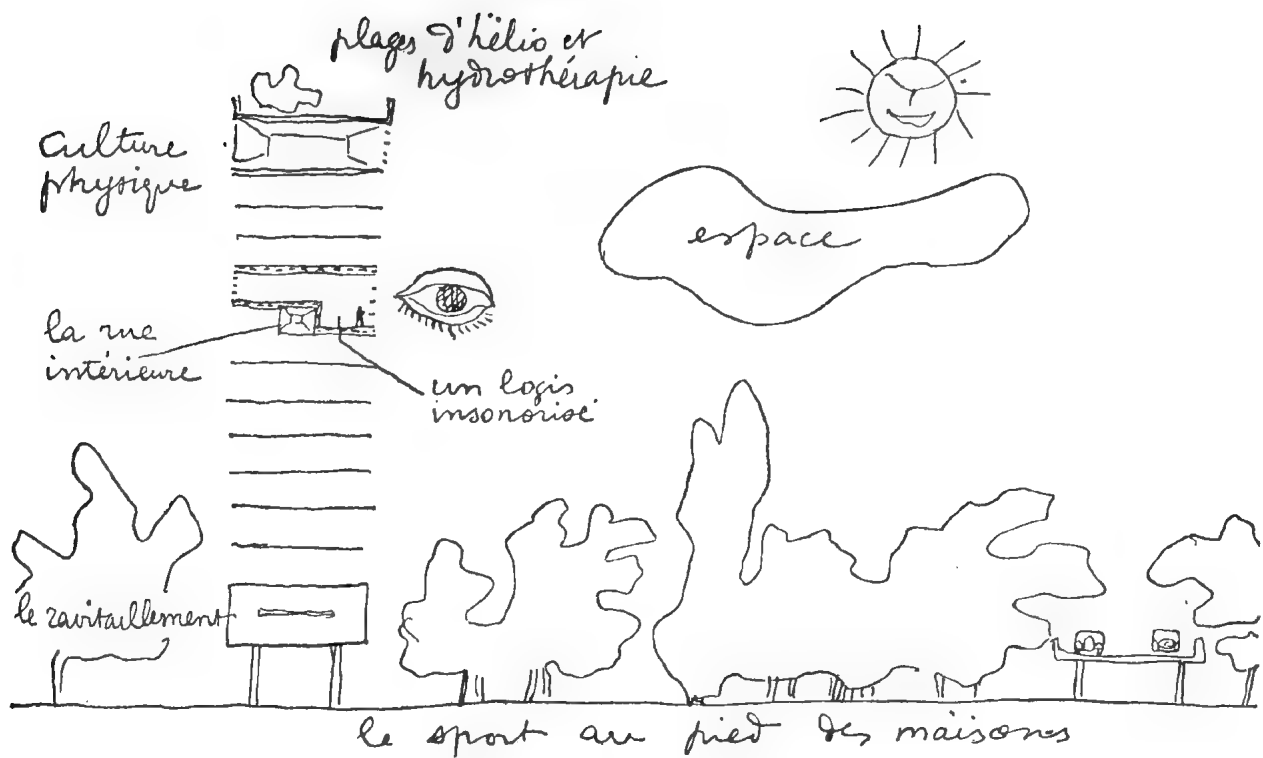 plages d'hëlio et
hydrothérapie
culture
physique
espace
la rue
intérieure
un logis
insonorisé
le ravitaillement
le sport au pied des maisons